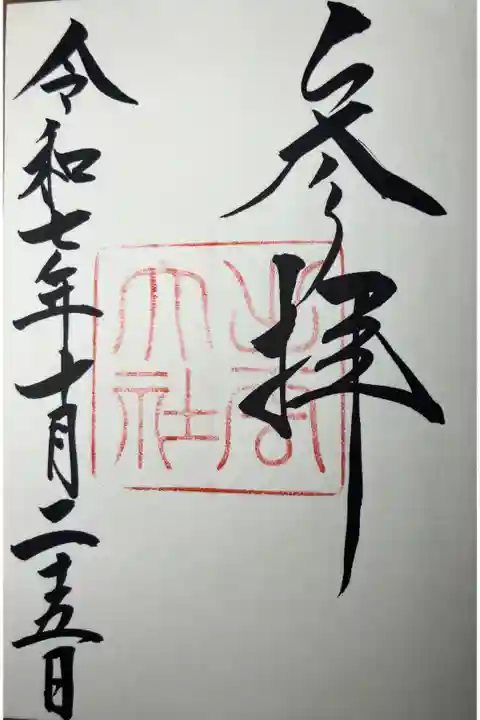 参拝
出雲
大社
令和七年十月二十五日